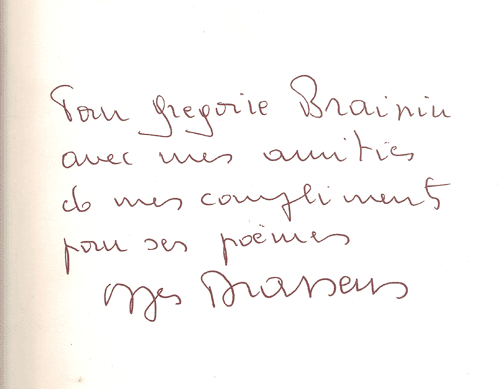 Pour Gregoire Brainin
avec mes amitiés
& mes compliments
pour ses poèmes
Brassens